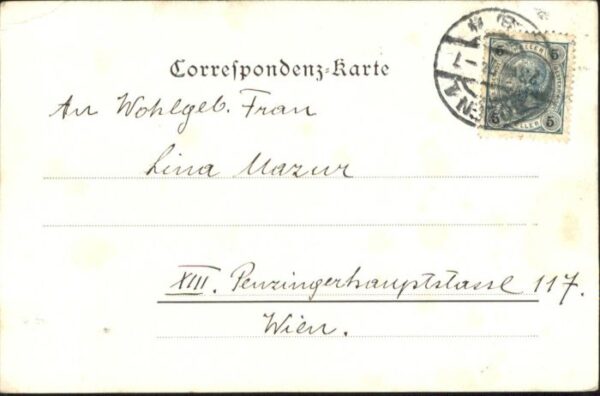 Correspondenz-Karte
5 5
HELLER
5 5
An Wohlgeb. Frau
Lina Mazur
XIII. Penzingerhauptstasse 117.
Wien.